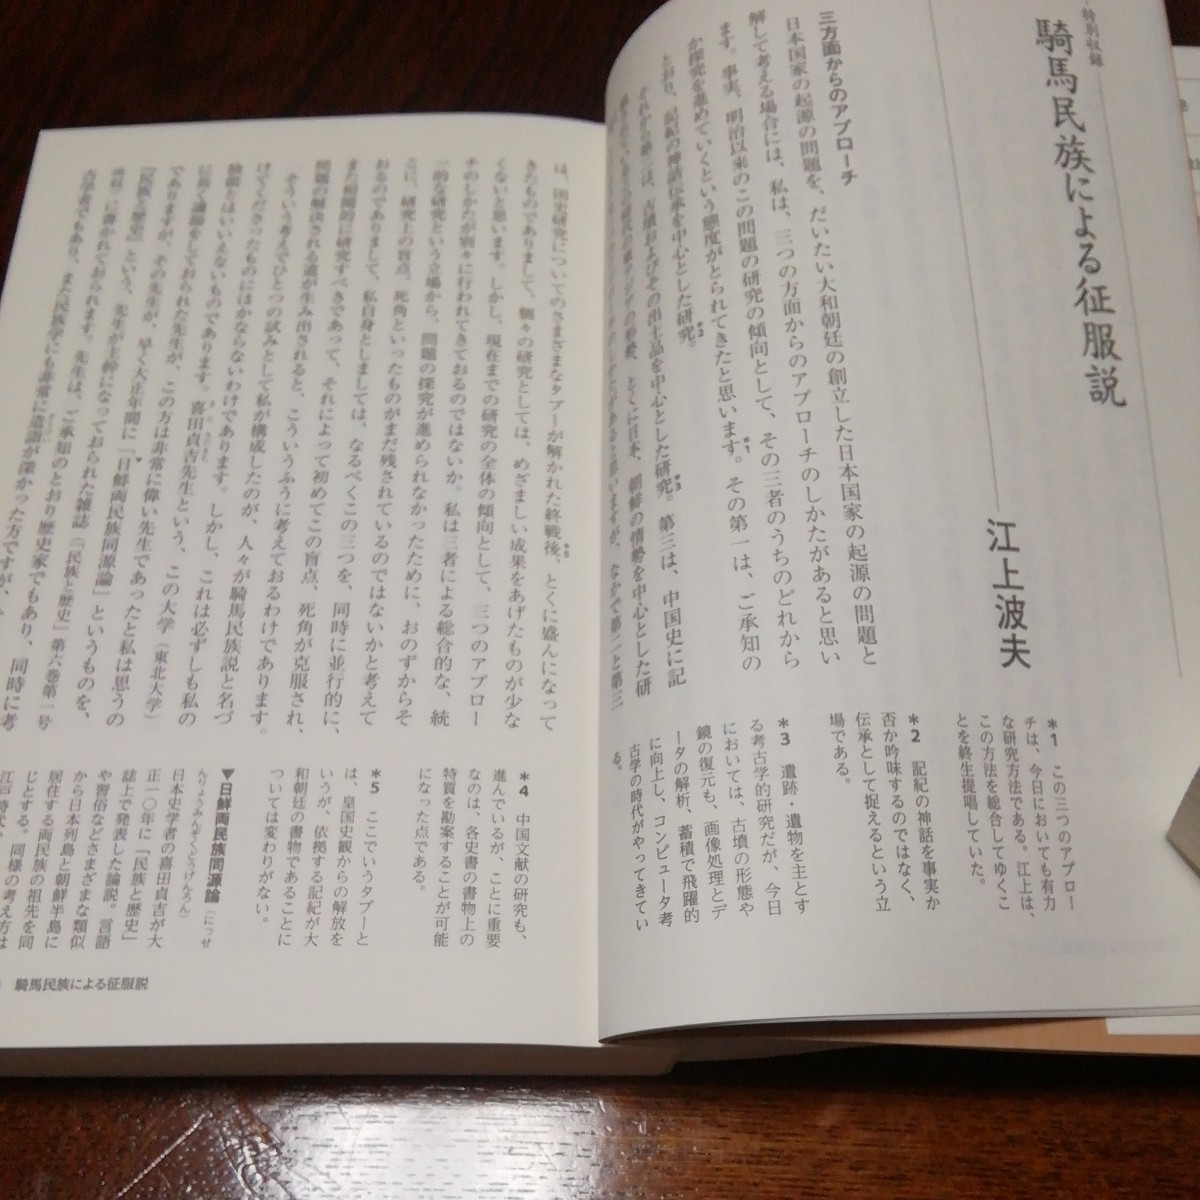 特別収録
騎馬民族による征服説
江上波夫
三方面からのアプローチ
日本国家の起源の問題を、だいたい大和朝廷の創立した日本国家の起源の問題と
解して考える場合には、私は、三つの方面からのアプローチのしかたがあると思い
ます。事実、明治以来のこの問題の研究の傾向として、その三者のうちのどれから
か探究を進めていくという態度がとられてきたと思います。*1その第一は、ご承知の
とおり、記紀の神話伝承を中心とした研究。*2
それから第二は、古墳およびその出土品を中心とした研究。*3第三は、中国史に記
朝鮮の情勢を中心とした研
なかで第二と第三
*1 この三つのアプロー
チは、今日においても有力
な研究方法である。江上は、
この方法を総合してゆくこ
とを終生提唱していた。
*2 記紀の神話を事実か
否か吟味するのではなく、
伝承として捉えるという立
場である。
*3 遺跡・遺物を主とす
る考古学的研究だが、今日
においては、古墳の形態や
鏡の復元も、画像処理とデ
ータの解析、蓄積で飛躍的
に向上し、コンピュータ考
古学の時代がやってきてい
る。
は、国史研究についてのさまざまなタブーが解かれた終戦後、*5とくに盛んになって
きたものでありまして、個々の研究としては、めざましい成果をあげたものが少な
くないと思います。しかし、現在までの研究の全体の傾向として、三つのアプロー
チのしかたが別々に行われてきておるのではないか。私は三者による総合的な、統
一的な研究という立場から、問題の探究が進められなかったために、おのずからそ
こに、研究上の盲点、死角といったものがまだ残されているのではないかと考えて
おるのでありまして、私自身としましては、なるべくこの三つを、同時に並行的に、
また相関的に研究すべきであって、それによって初めてこの盲点、死角が克服され、
問題の解決される道が生み出されると、こういうふうに考えておるわけであります。
そういう考えでひとつの試みとして私が構成したのが、人々が騎馬民族説と名づ
けてくださったものにほかならないわけであります。しかし、これは必ずしも私の
独創とはいいえないものであります。喜田貞吉先生という、この大学（東北大学）
に長く講義をしておられた先生が、この方は非常に偉い先生であったと私は思うの
でありますが、その先生が、早く大正年間に「日鮮両民族同源論」というものを、
『民族と歴史』という、先生が主幹になっておられた雑誌（『民族と歴史』第六巻第一号
所収）に書かれておられます。先生は、ご承知のとおり歴史家でもあり、同時に考
古学者でもあり、また民族学にも非常に造詣が深かった方ですが、
*4 中国文献の研究も、
進んでいるが、ことに重要
なのは、各史書の書物上の
特質を勘案することが可能
になった点である。
*5 ここでいうタブーと
は、皇国史観からの解放を
いうが、依拠する記紀が大
和朝廷の書物であることに
ついては変わりがない。
▼日鮮両民族同源論（にっせ
んりょうみんぞくどうげんろん）
日本史学者の喜田貞吉が大
正一〇年に「民族と歴史」
誌上で発表した論説。言語
や習俗などさまざまな類似
から日本列島と朝鮮半島に
居住する両民族の祖先を同
じとする。同様の考え方は
江戸時代
騎馬民族による征服説